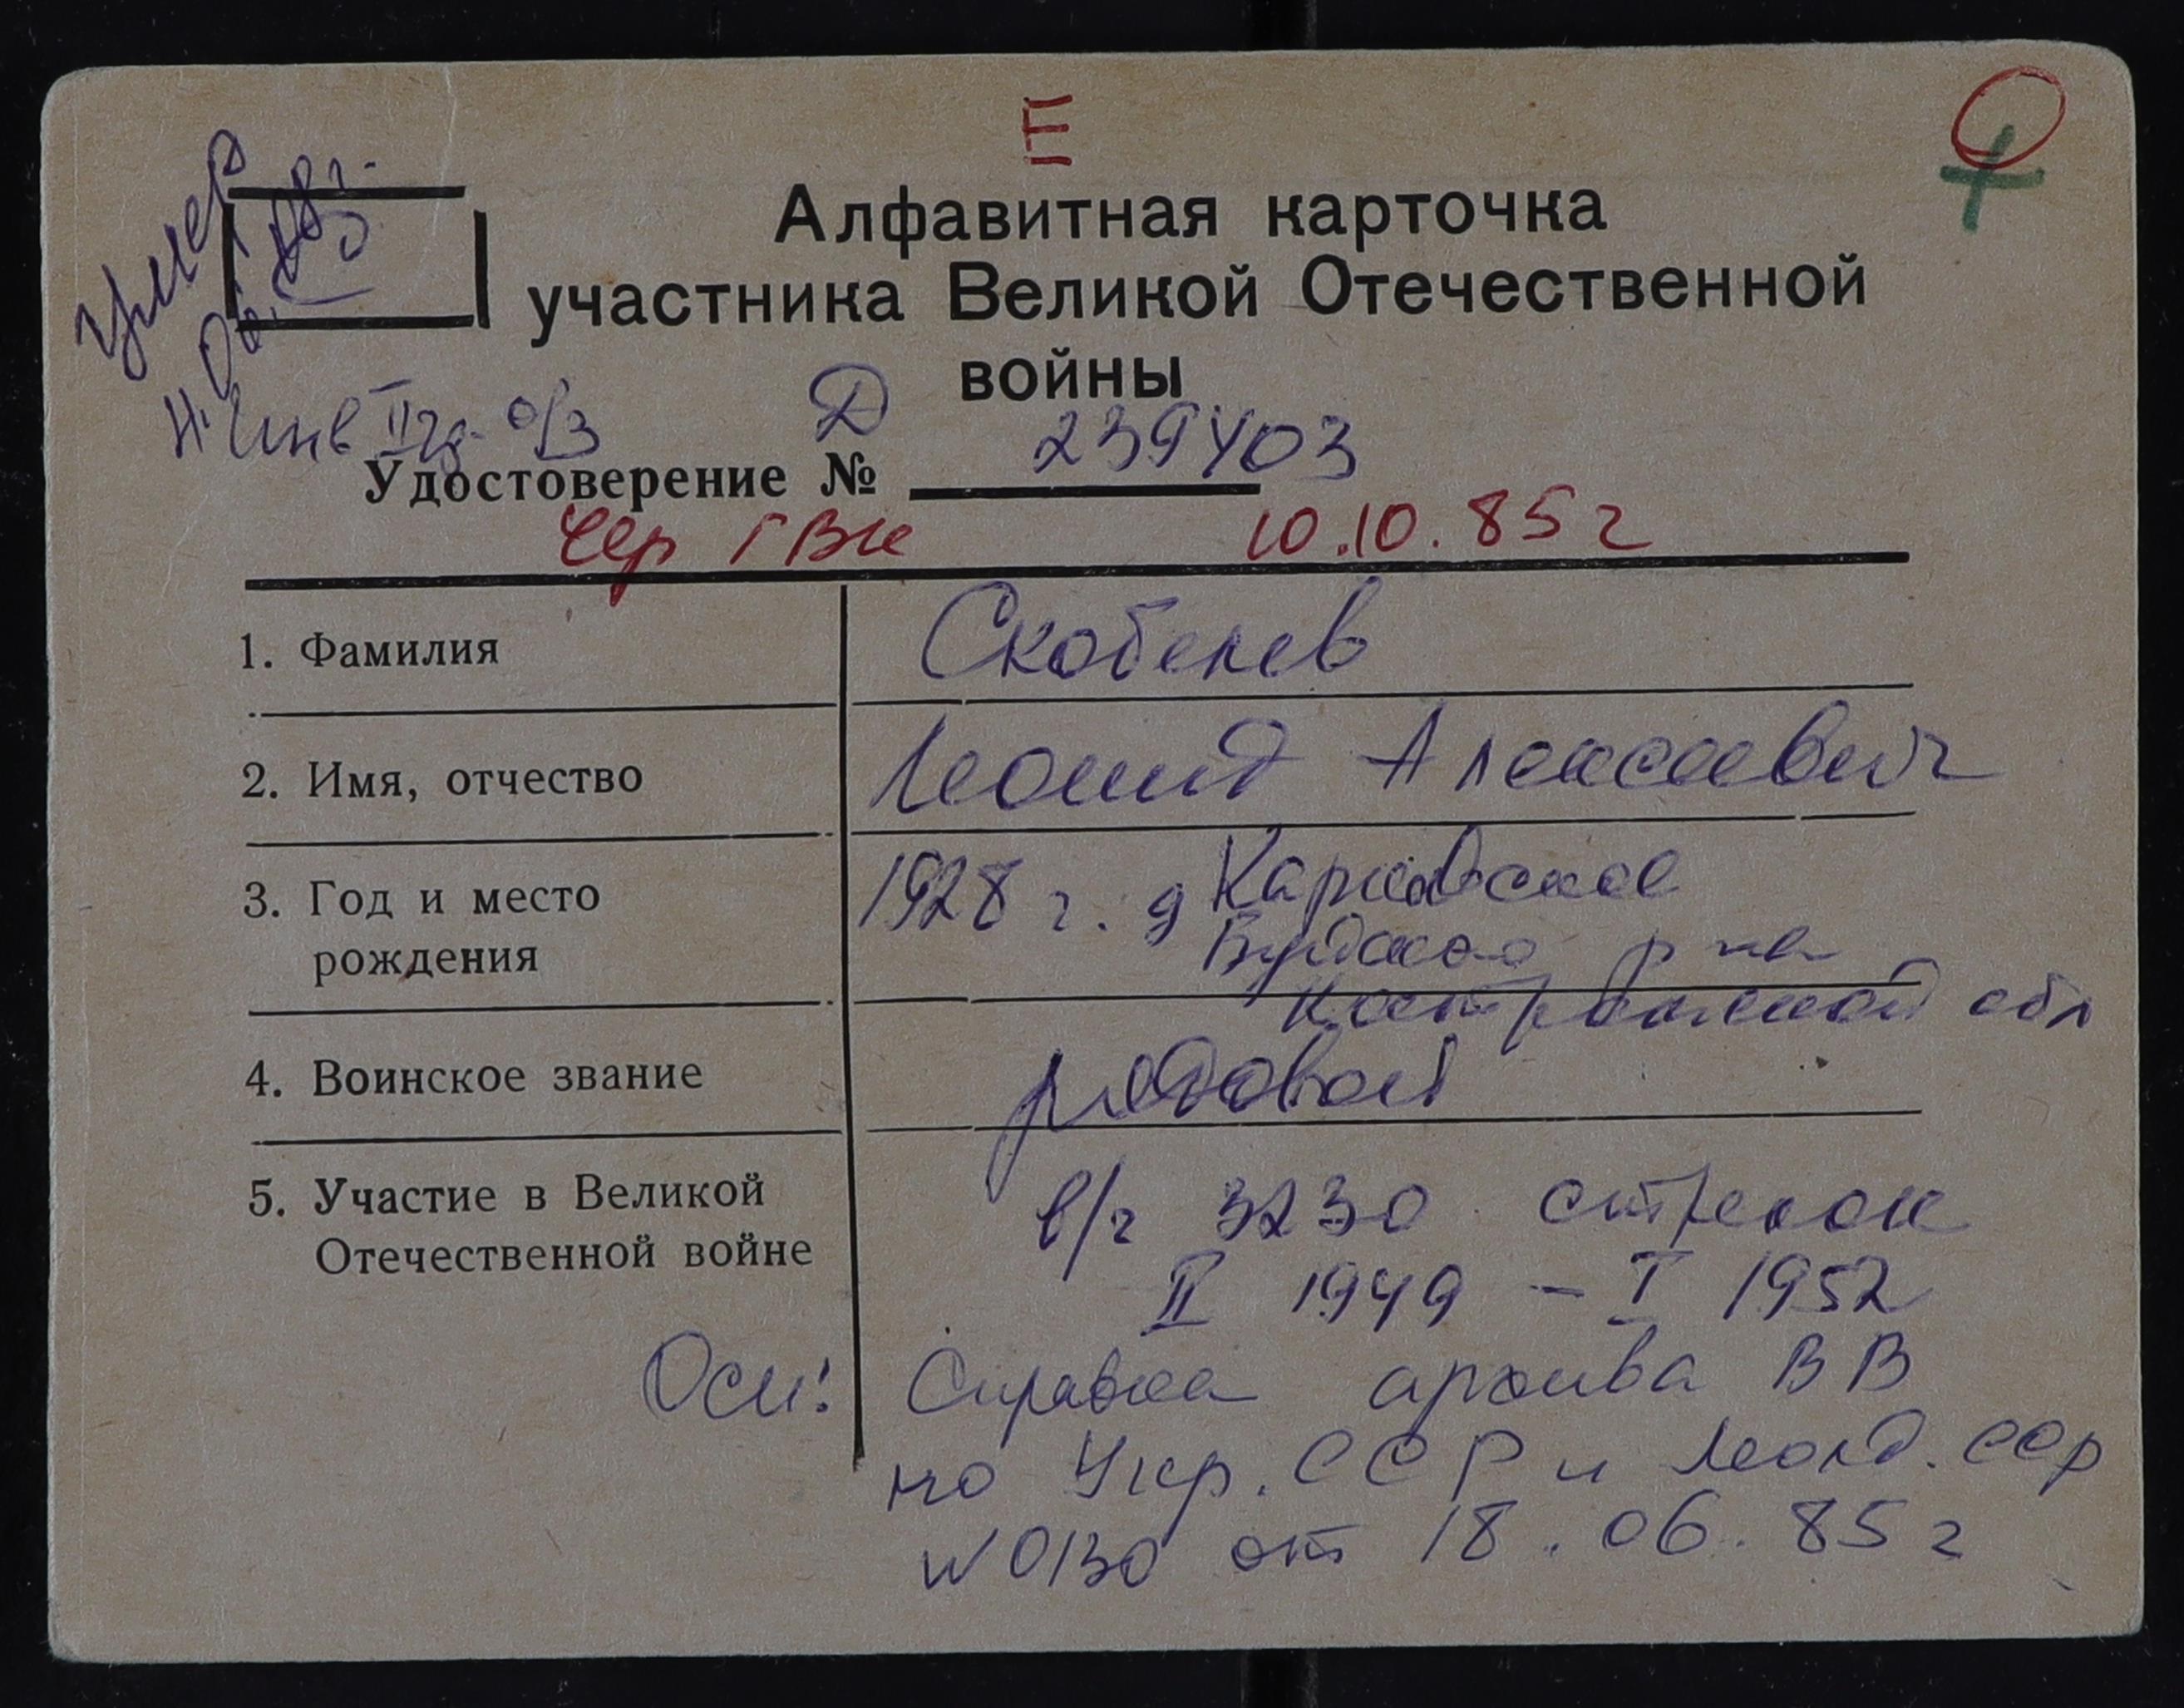 Ш
Алфавитная карточка
участника Великой Отечественной
войны
Умер
Инв II гр. о/з
Д
Удостоверение № 239403
Чер ГВК 10.10.85 г
1. Фамилия Скобелев
2. Имя, отчество Леонид Алексеевич
3. Год и место рождения 1928 г. д
р-на
Костромской обл
4. Воинское звание рядовой
5. Участие в Великой Отечественной войне в/ч 3230 стрелок
II 1949 – I 1952
Осн: Справка архива ВВ
по Укр. ССР и Молд. ССР
N 0130 от 18.06.85 г